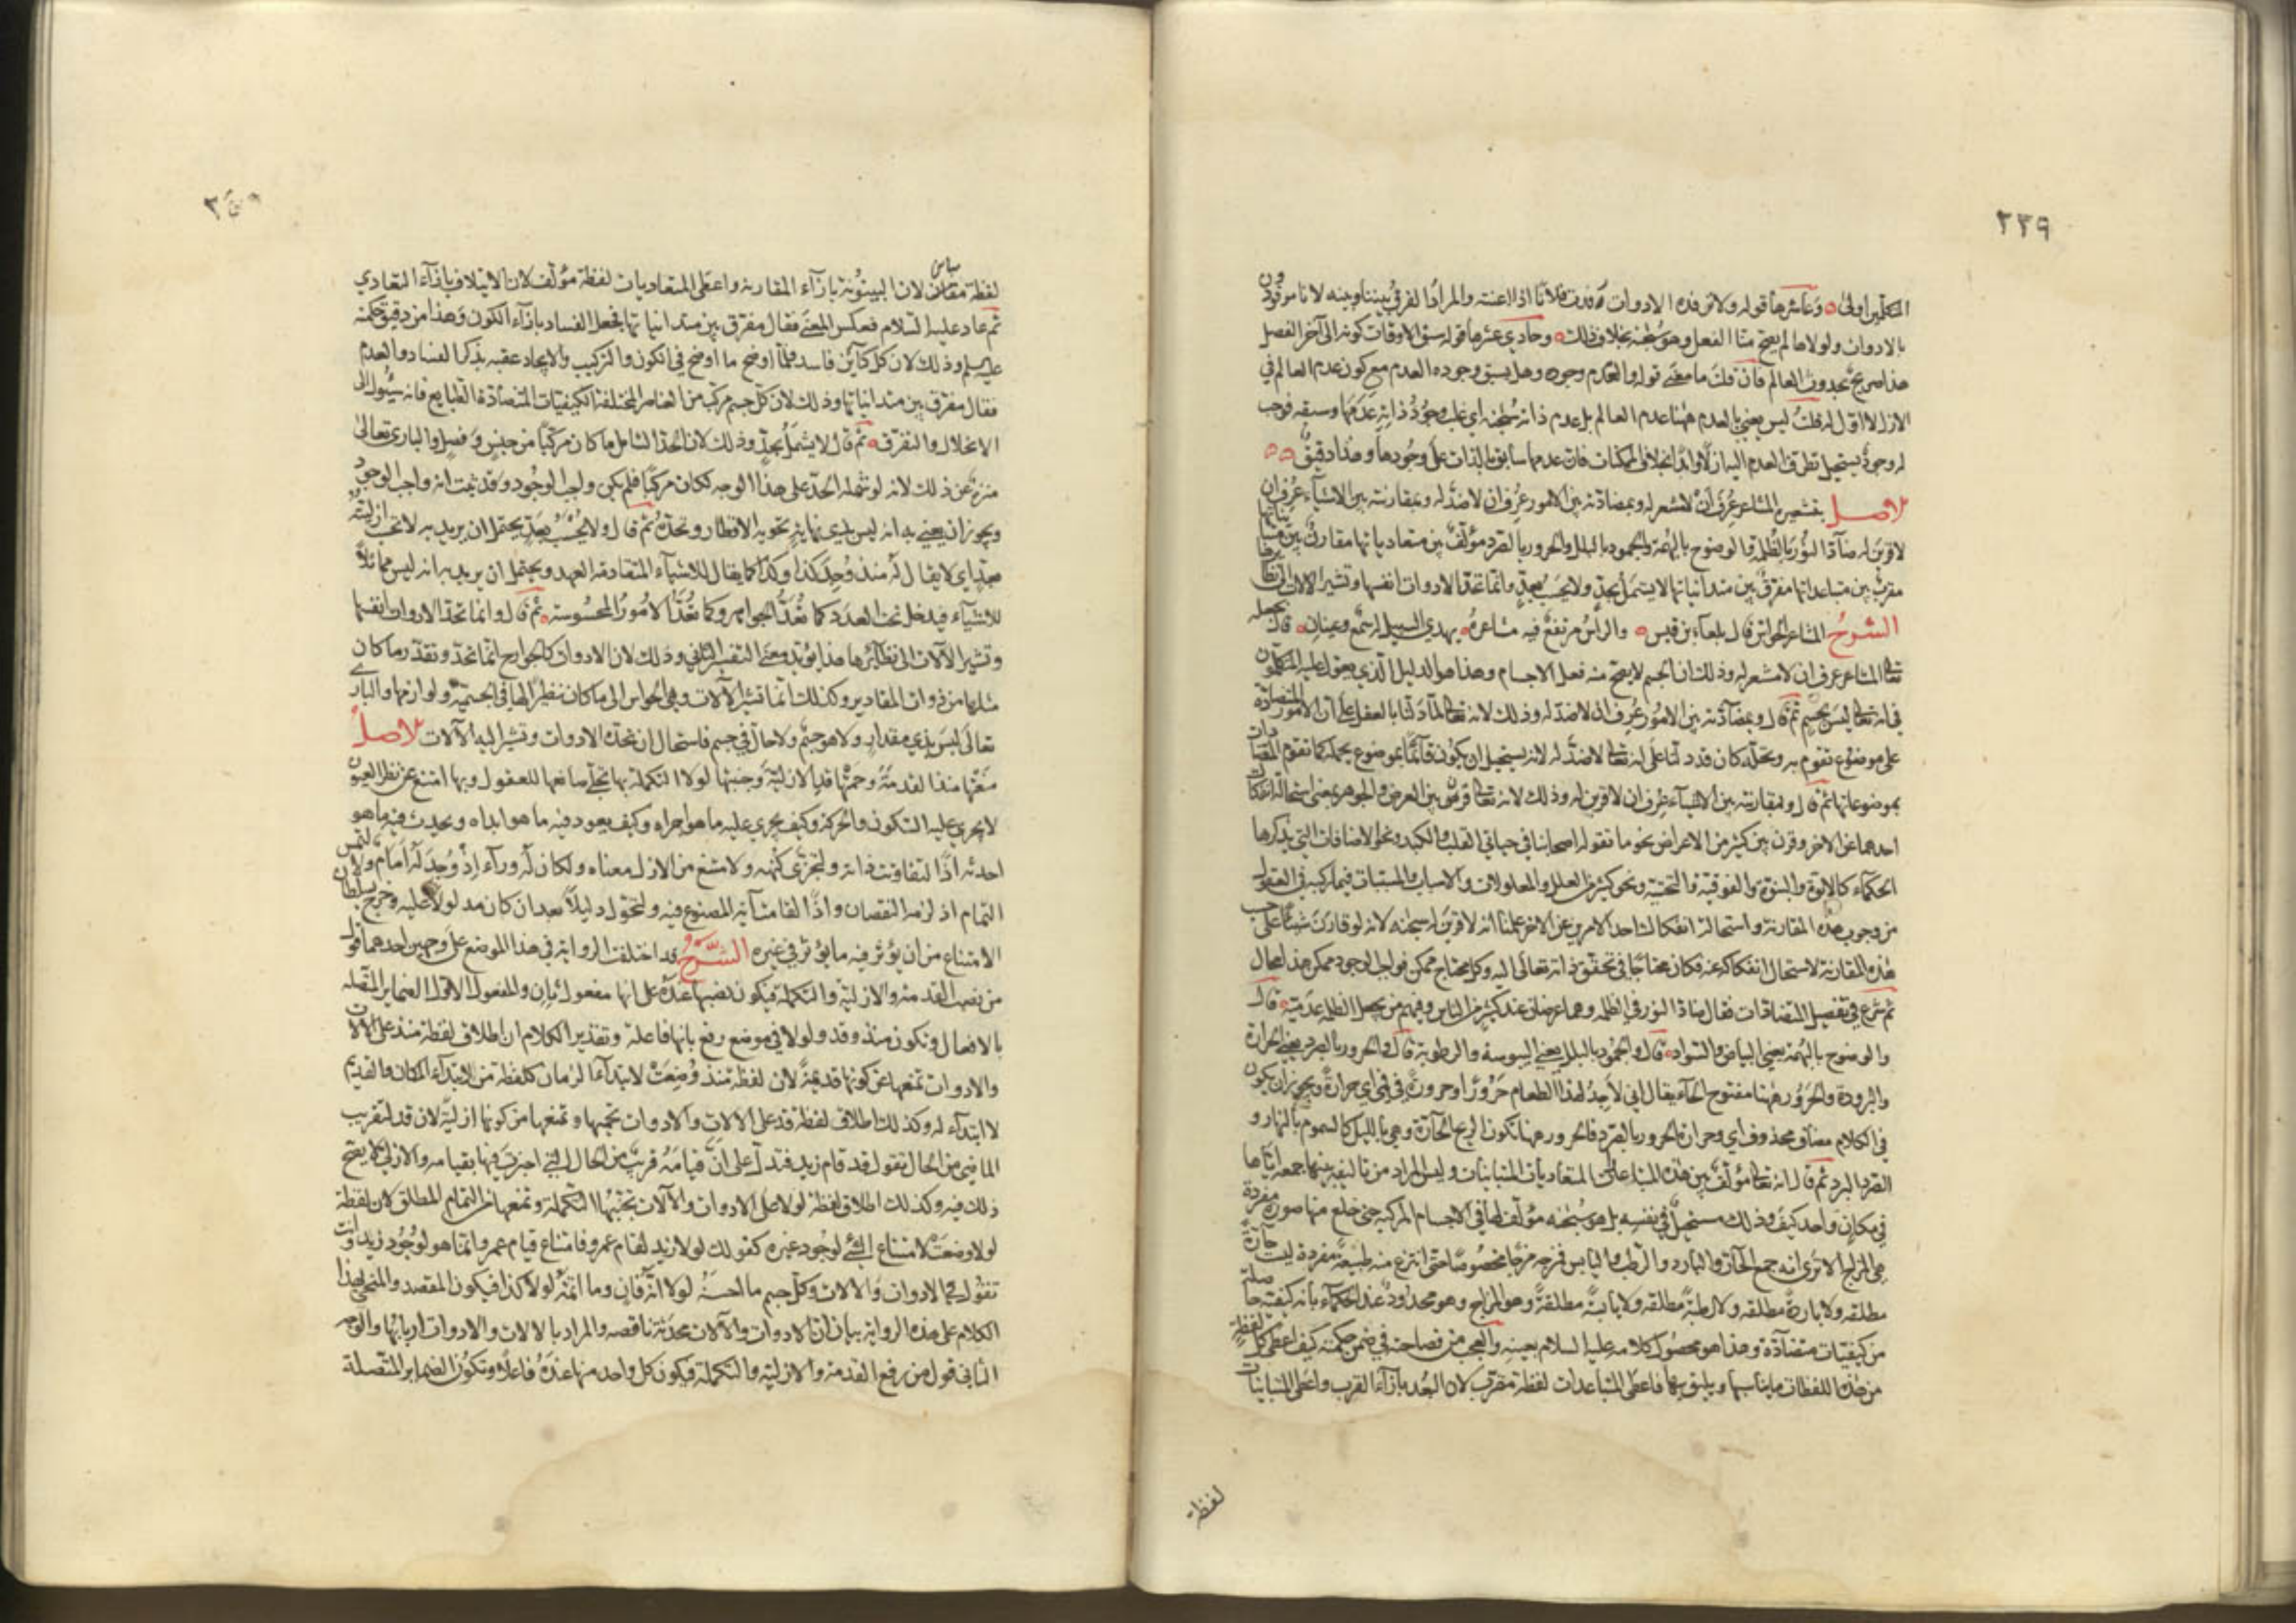 ٢٣٩
المتكلمين اولى وعاشرها قوله ولا ترفده الادوات رفدت فلانا اذا اعنته والمراد الفرق بيننا وبينه لاننا مرفودون
بالادوات ولولاها لم يصح منا الفعل وهو سبحنه بخلاف ذلك وحادي عشرها قوله سبق الاوقات كونه الى آخر الفصل
هذا صريح بحدوث العالم فان قلت ما معنى قوله والعدم وجوده وهل يسبق وجوده العدم مع كون عدم العالم في
الازل لا اول له قلت ليس يعني بالعدم ههنا عدم العالم بل عدم ذاته سبحنه اي غلب وجود ذاته عدمها وسبقه فوجب
له وجود يستحيل تطرق العدم اليه ازلا وابدا بخلاف الممكنات فان عدمها سابق بالذات على وجودها وهذا دقيق
الاصل بتشعيره المشاعر عرف ان لا مشعر له وبمضادته بين الامور عرف ان لا ضد له وبمقارنته بين الاشياء عرف ان
لا قرين له ضاد النور بالظلمة والوضوح بالبهمة والجمود بالبلل والحرور بالصرد مؤلف بين متعادياتها مقارن بين متبايناتها
مقرب بين متباعداتها مفرق بين متدانياتها لا يشمل بحد ولا يحسب بعد وانما تحد الادوات انفسها وتشير الالات الى نظائرها
الشرح المشاعر الحواس قال بلعاء بن قيس والراس مرتفع فيه مشاعره يهدي السبيل له سمع وعينان قال بجعله
تعالى المشاعر عرف ان لا مشعر له وذلك ان الجسم لا يصح منه فعل الاجسام وهذا هو الدليل الذي يعول عليه المتكلمون
في انه تعالى ليس بجسم ثم قال وبمضادته بين الامور عرف ان لا ضد له وذلك لانه تعالى لما دلنا بالعقل على ان الامور المتضادة
على موضوع تقوم به وتحله كان قد دلنا على انه تعالى لا ضد له لانه يستحيل ان يكون قائما بموضوع يحله كما تقوم المتضادات
بموضوعاتها ثم قال وبمقارنته بين الاشياء عرف ان لا قرين له وذلك لانه تعالى قرن بين العرض والجوهر بمعنى استحالة انفكاك
احدهما عن الاخر وقرن بين كثير من الاعراض نحو ما تقوله اصحابنا في حياتي القلب والكبد ونحو الاضافات التي يذكرها
الحكماء كالابوة والبنوة والفوقية والتحتية ونحو كثير من العلل والمعلولات والاسباب والمسببات فيما ركبه في العقول
من وجوب هذه المقارنة واستحالة انفكاك احد الامرين عن الاخر علمنا انه لا قرين له سبحنه لانه لو قارن شيئا على حسب
هذه المقارنة لاستحال انفكاكه عنه فكان محتاجا في تحقق ذاته تعالى اليه وكل محتاج ممكن فواجب الوجود ممكن هذا محال
ثم شرع في تفصيل المتضادات فقال ضاد النور في الظلمة وهما عرضان عند كثير من الناس وفيهم من يجعل الظلمة عدمية قال
والوضوح بالبهمة يعني البياض والسواد قال والجمود بالبلل يعني اليبوسة والرطوبة قال والحرور بالصرد يعني الحرارة
والبرودة والحرور ههنا مفتوح الحاء يقال اني لاجد لهذا الطعام حرورا وحرورة في فمي اي حرارة ويجوز ان يكون
في الكلام مضاف محذوف اي وحرارة الحرور بالصرد فالحرور ههنا تكون الريح الحارة وهي بالليل كالسموم بالنهار و
الصرد البرد ثم قال انه تعالى مؤلف بين هذه المتباعدات المتعاديات المتباينات وليس المراد من تاليفه بينها جمعه اياها
في مكان واحد كيف وذلك مستحيل في نفسه بل هو سبحنه مؤلف لها في الاجسام المركبة حتى خلع منها صورة مفردة
هي المزاج الا ترى انه جمع الحار والبارد والرطب واليابس فمزجه مزجا مخصوصا حتى انتزع منه طبيعة مفردة ليست حارة
مطلقه ولا باردة مطلقه ولا رطبة مطلقه ولا يابسة مطلقة وهو المزاج وهو محدود عند الحكماء بانه كيفية حاصلة
من كيفيات متضادة وهذا هو محصول كلامه عليه السلام بعينه والعجب من فصاحته في ضمن حكمته كيف اعطى كل لفظة
من هذه اللفظات ما يناسبها ويليق بها فاعطى المتباعدات لفظة مقرب لان البعد بازاء القرب واعطى المتباينات
لفظة
لفظة مقارن لان البينونة بازاء المقارنة واعطى المتعاديات لفظة مؤلف لان الايتلاف بازاء التعادي
ثم عاد عليه السلام فعكس المعنى فقال مفرق بين متدانياتها فجعل الفساد بازاء الكون وهذا من دقيق حكمته
عليه السلم وذلك لان كل كاين فاسد فلما اوضح ما اوضح في الكون والتركيب والايجاد عقبه بذكر الفساد والعدم
فقال مفرق بين متدانياتها وذلك لان كل جسم مركب من العناصر المختلفة الكيفيات المتضادة الطبايع فانه سيئول الى
الانحلال والتفرق ثم قال لا يشمل بحد وذلك لان الحد الشامل ما كان مركبا من جنس وفصل والباري تعالى
منزه عن ذلك لانه لو شمله الحد على هذا الوجه لكان مركبا فلم يكن واجب الوجود وقد ثبت انه واجب الوجود
ويجوز ان يعني به انه ليس بذي نهاية تحويه الاقطار وتحده ثم قال ولا يحسب بعد يحتمل ان يريد به لا تحسب ازليته
بعد اي لا يقال له منذ وجد كذا وكذا كما يقال للاشياء المتقادمة العهد ويحتمل ان يريد به انه ليس مماثلا
للاشياء فيدخل تحت العدد كما تعد الجواهر وكما تعد الامور المحسوسة ثم قال وانما تحد الادوات انفسها
وتشير الالات الى نظائرها هذا يؤيد معنى التفسير الثاني وذلك لان الادوات كالجوارح انما تحد وتقدر ما كان
مثلها من ذوات المقادير وكذلك انما تشير الآلات وهي الحواس الى ما كان نظيرا لها في الجسمية ولوازمها والباري
تعالى ليس بذي مقدار ولا هو جسم ولا حال في جسم فاستحال ان تحده الادوات وتشير اليه الآلات الاصل
منعتها منذ القدمة وحمتها قد الازلية وجنبتها لولا التكملة بها تجلى صانعها للعقول وبها امتنع عن نظر العيون
لا يجري عليه السكون والحركة وكيف يجري عليه ما هو اجراه وكيف يعود فيه ما هو ابداه ويحدث فيه ما هو
احدثه اذا لتفاوتت ذاته ولتجزى كنهه ولامتنع من الازل معناه ولكان له وراء اذ وجد له امام ولالتمس
التمام اذ لزمه النقصان واذا لقامت آية المصنوع فيه ولتحول دليلا بعد ان كان مدلولا عليه وخرج بسلطان
الامتناع من ان يؤثر فيه ما يؤثر في غيره الشرح قد اختلفت الرواية في هذا الموضع على وجهين احدهما قول
من نصب القدمة والازلية والتكملة فيكون نصبها عنده على انها مفعول ثان والمفعول الاول الضماير المتصلة
بالافعال وتكون منذ وقد ولولا في موضع رفع بانها فاعلة وتقدير الكلام ان اطلاق لفظة منذ على الآلات
والادوات تمنعها عن كونها قديمة لان لفظة منذ وضعت لابتداء الزمان كلفظة من لابتداء المكان والقديم
لا ابتداء له وكذلك اطلاق لفظة قد على الالات والادوات تحميها وتمنعها من كونها ازلية لان قد لتقريب
الماضي من الحال تقول قد قام زيد فتدل على ان قيامه قريب من الحال التي اخبرت فيها بقيامه والازلي لا يصح
ذلك فيه وكذلك اطلاق لفظة لولا على الادوات والآلات تجنبها التكملة وتمنعها من التمام المطلق لان لفظة
لولا وضعت لامتناع الشئ لوجود غيره كقولك لولا زيد لقام عمرو فامتناع قيام عمرو انما هو لوجود زيد وانت
تقول في الادوات والالات وكل جسم ما احسنه لولا انه فان وما اتمه لولا كذا فيكون المقصد والمنحى بهذا
الكلام على هذه الرواية بيان ان الادوات والآلات محدثة ناقصه والمراد بالالات والادوات اربابها والوجه
الثاني قول من رفع القدمة والازلية والتكملة فيكون كل واحد منها عنده فاعلا وتكون الضماير المتصلة